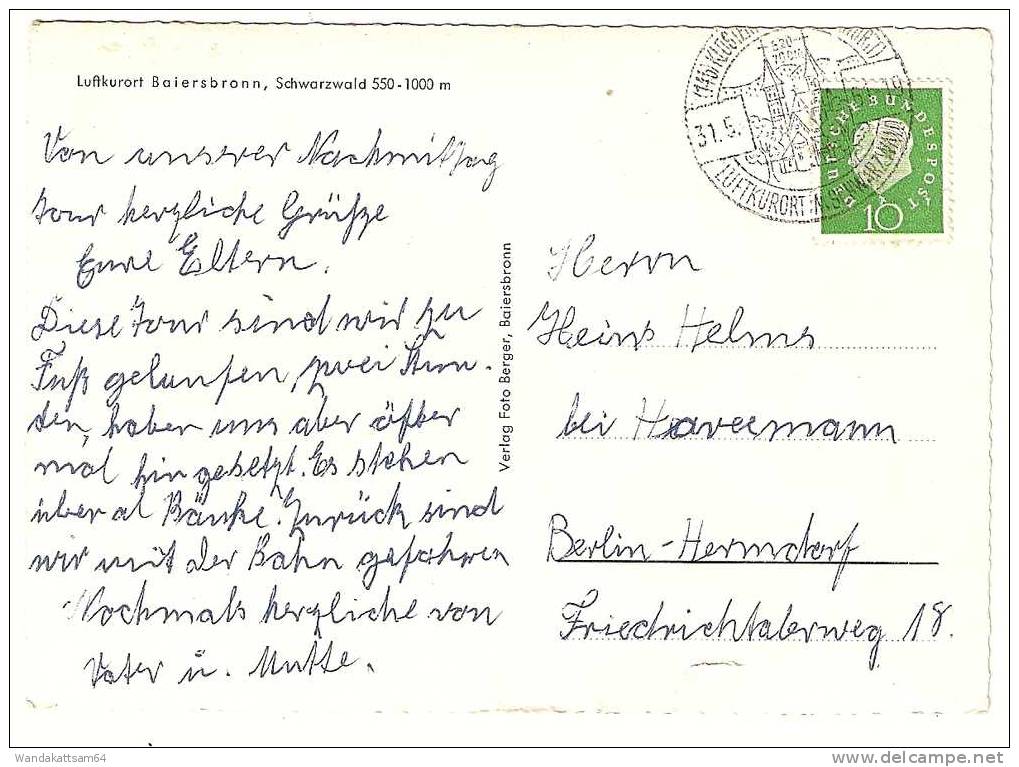 Luftkurort Baiersbronn, Schwarzwald 550-1000 m
Von unserer Nachmittag
tour herzliche Grüße
Eure Eltern.
Diese Tour sind wir zu
Fuß gelaufen, zwei Stun-
den, haben uns aber öfter
mal hingesetzt. Es stehen
über al Bänke. Zurück sind
wir mit der Bahn gefahren
Nochmals herzliche von
Vater u. Mutte.
Verlag Foto Berger, Baiersbronn
31.5.
LUFTKURORT I. SCHWARZWALD
DEUTSCHE BUNDESPOST
10
Herrn
Heinz Helms
bei Havermann
Berlin-Hermsdorf
Friedrichtalerweg 18.
Wandakattsam64
delcampe.net